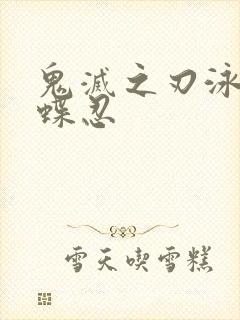 鬼滅之刃泳
蝶忍
雪天喫雪糕